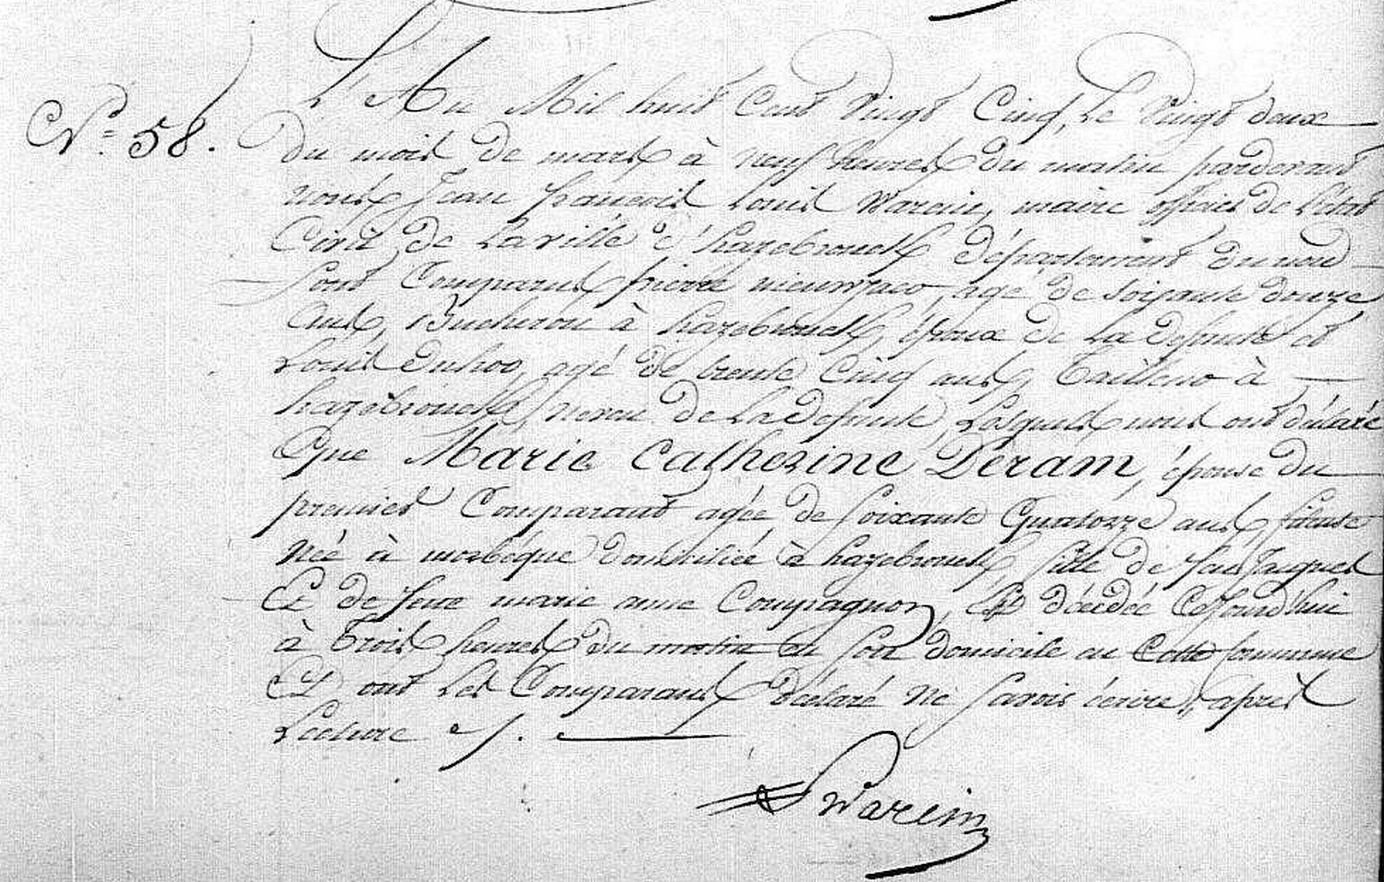 N.° 58.
L'An Mil huit Cent Vingt Cinq, Le Vingt deux
du mois de mars à neuf heures du matin pardevant
nous Jean françois Louis Warein, maire officier de l'état
Civil de La ville d'hazebrouck département du nord
Sont Comparus pierre agé de soixante douze
ans, Bucheron à hazebrouck, époux de La defunte et
Louis agé de trente Cinq ans, Tailleur à
hazebrouck, neveu de La defunte, Lesquels nous ont déclaré
Que Marie Catherine Deram, épouse du
premier Comparant agée de soixante Quatorze ans, fileuse
née à morbeque domiciliée à hazebrouck, fille de feu Jacques
Et de feue marie anne Compagnon, est décédée Cejourd'hui
à trois heures du matin en son domicile en Cette Commune
Et ont Les Comparans déclaré ne savoir écrire, après
Lecture
Warein